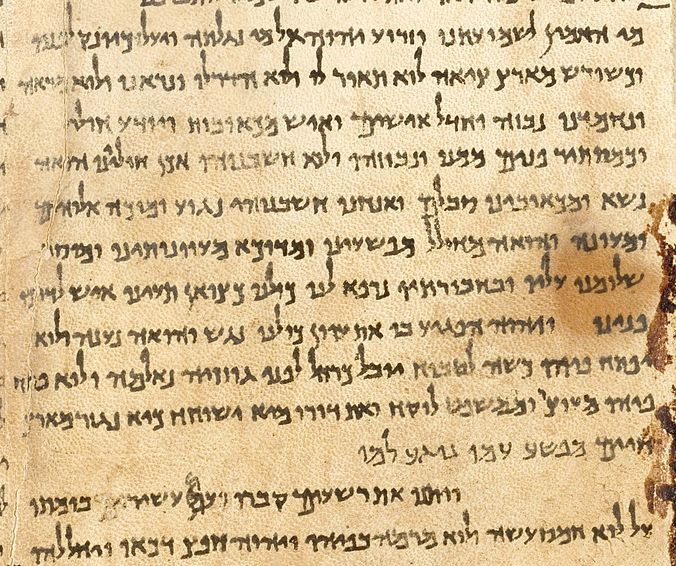 מי האמין לשמועתנו וזרוע יהוה אל מי נגלתה ויעל כיונק לפניו
וכשורש מארץ ציאה לוא תואר לו ולא הדר לו ונראנו ולוא מראה
ונחמדנו נבזה וחדל אישים ואיש מכאובות ויודע חולי
וכמסתיר פנים ממנו ונבוזהו ולא חשבנוהו אכן חוליינו הואה
נשא ומכאובינו סבלם ואנחנו חשבנוהו נגוע ומוכה אלוהים
ומעונה והואה מחולל מפשעינו ומדוכא מעוונותינו ומוסר
שלומנו עליו ובחבורתיו נרפא לנו כולנו כצואן תעינו איש לדרכו
פנינו ויהוה הפגיע בו את עוון כולנו נגש והואה נענה ולוא
יפתח פיהו כשה לטבוח יובל כרחל לפני גוזזיה נאלמה ולוא פתח
פיהו מעוצר וממשפט לוקח ואת דורו מיא ישוחח כיא נגזר מארץ
חיים מפשע עמו נוגע למו
ויתנו את רשעים קברו ועם עשיר בומתו
על לוא חמס עשה ולוא מרמה בפיהו ויהוה חפץ דכאו ויחללהו